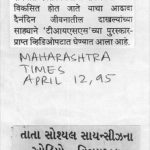 विकसित होत जाते याचा आढावा
दैनंदिन जीवनातील दाखल्यांच्या
साह्याने 'टीआयएसएस'च्या पुरस्कार-
प्राप्त व्हिडिओपटात घेण्यात आला आहे.
MAHARASHTRA
TIMES
APRIL 12, 95
टाटा सोश्यल सायन्सीजना